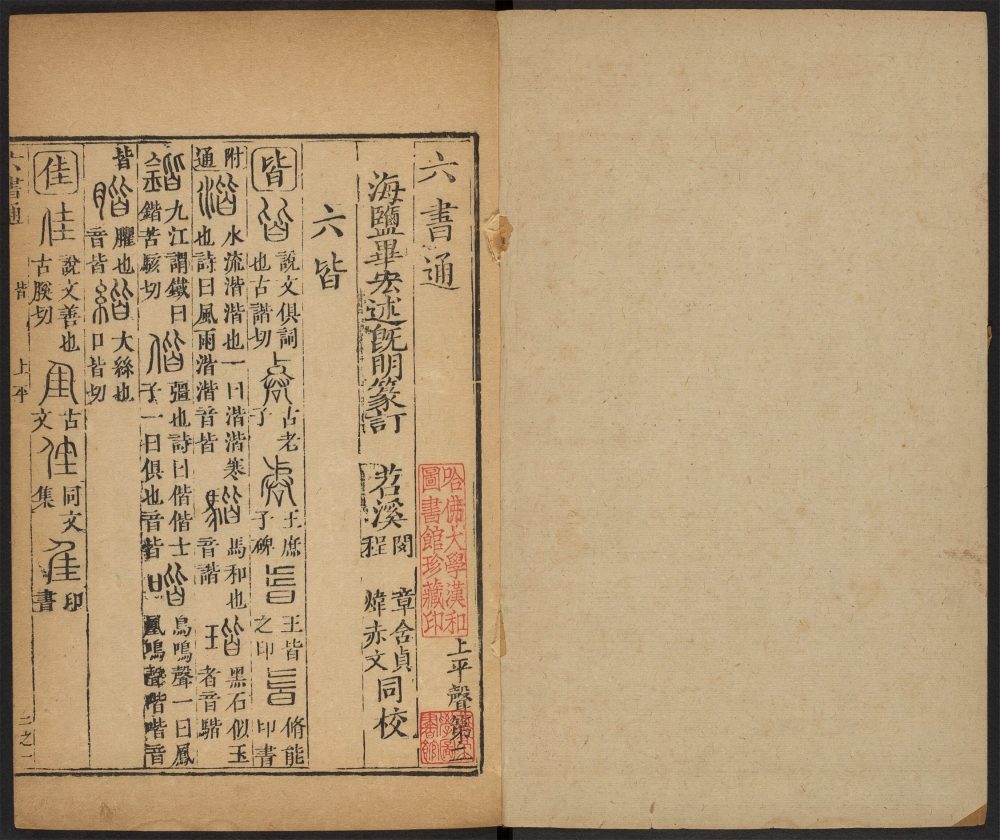 六書通
上平聲第二
哈佛大學漢和
圖書館珍藏印
海鹽畢弘述既明篆訂
苕溪
閔章含貞
程煒赤文
同校
六皆
皆 說文俱詞也古諧切 古老子 王庶子碑 王皆之印 脩能印書
附通 湝 水流湝湝也一曰湝湝寒也詩曰風雨湝湝音皆 馬和也音諧 黑石似玉者音諧
九江謂鐵曰鍇苦駭切 偕 彊也詩曰偕偕士子一曰俱也音皆 喈 鳥鳴聲一曰鳳凰鳴聲喈喈音皆
臞也音皆 大絲也口皆切
佳 說文善也古膎切 古文 同文集 印書
六書通 皆 上平 二之一